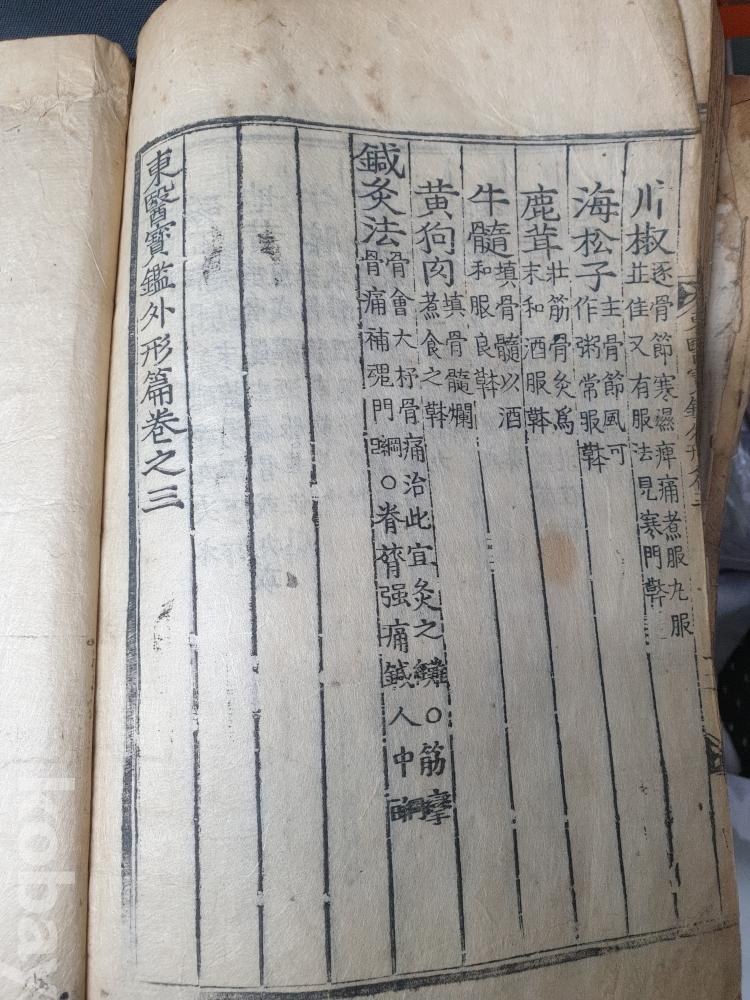 川椒 逐骨節寒濕痺痛煮服丸服
並佳又有服法見寒門
海松子 主骨節風可
作粥常服
鹿茸 壯筋骨灸爲
末和酒服
牛髓 填骨髓以酒
和服良
黃狗肉 填骨髓爛
煮食之
鍼灸法 骨會大杼骨痛治此宜灸之 ○筋攣
骨痛補魂門 ○脊膂强痛鍼人中
東醫寶鑑外形篇卷之三
kobay